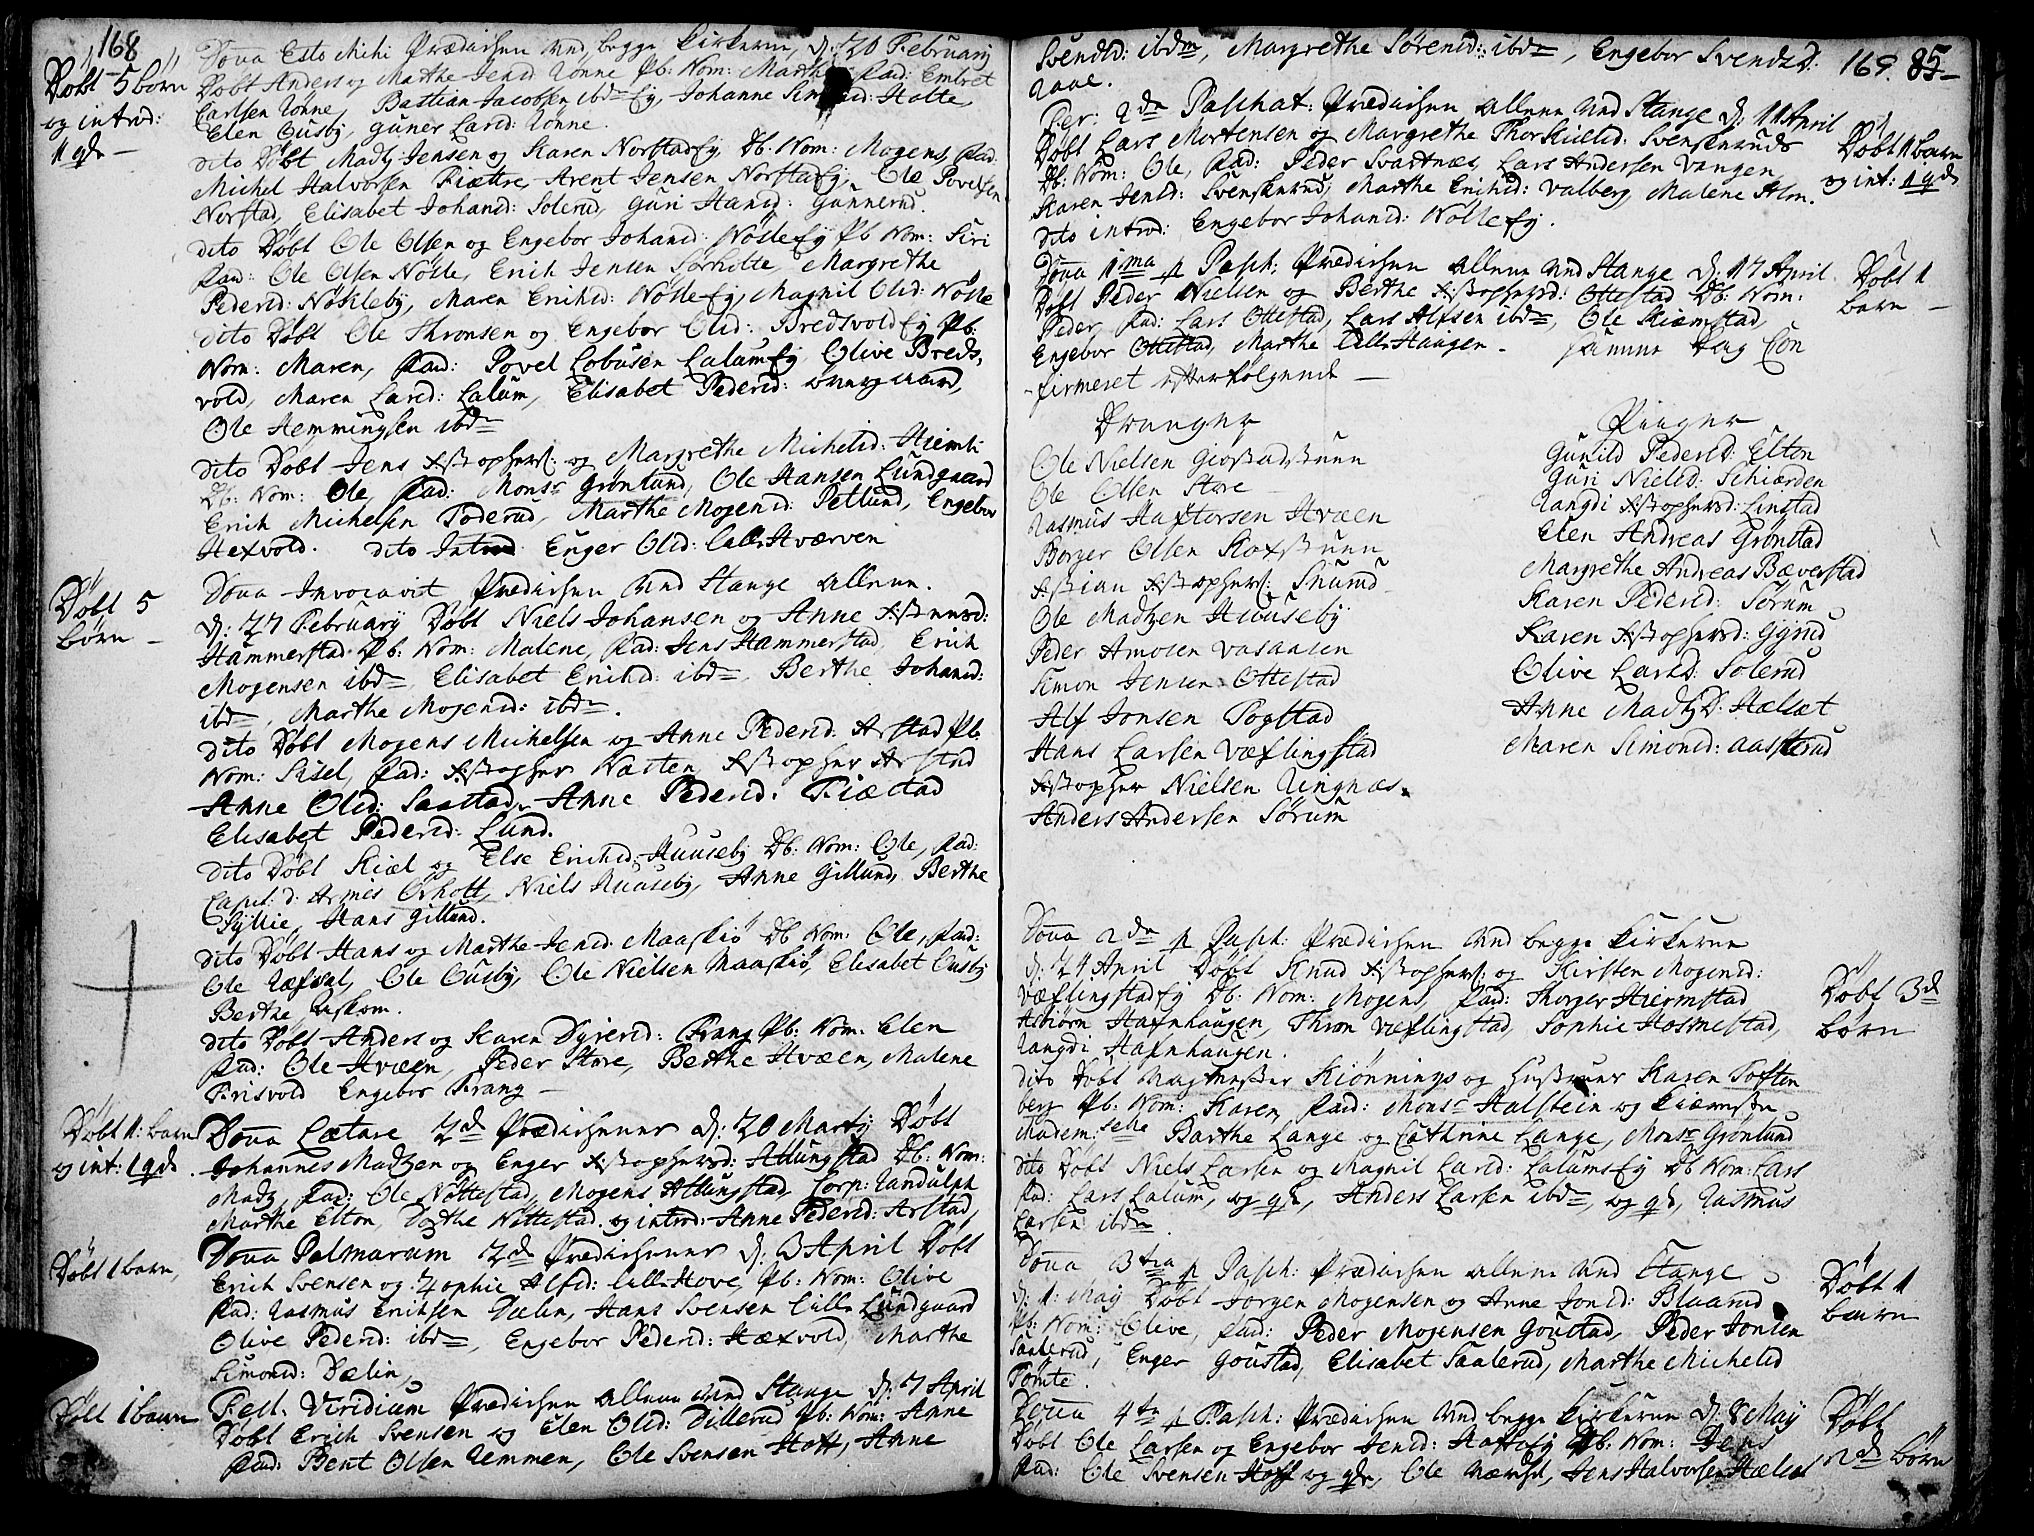 168
Døbt 5 børn
og introd:
1 qde —
Dōna Esto Mihi Prædichen ved begge Kirkerne, d: 20 February
Døbt Anders og Marthe Jensd: Rønne Pb: Nom: Marthe, Fad: Embret
Carlsen Rønne, Bastian Jacobsen ibdm Ey, Johanne Holte
Elen Cusby, Guner Larsd: Rønne.
dito Døbt Madtz Jensen og Karen Norstad Ey, Db: Nom: Mogens, Fad:
Michel Halvorsen Fiættre, Arent Jensen Norstad Ey, Ole Povelsen
Norstad, Elisabet Johansd: Solerud, Guri Hansd: Gunnerud.
dito Døbt Ole Olsen og Engebor Johansd: Nøtle Ey Pb Nom: Siri
Fad: Ole Olsen Nøtle, Erich Jensen Sørholte, Margrethe
Pedersd: Nøkleby, Maren Erichsd: Nøtle Ey, Magnil Olsd: Nøtle
dito Døbt Ole Thronsen og Engebor Olsd: Bredsvold Ey Pb:
Nom: Maren, Fad: Povel Cobusen Lalum Ey, Olive Breds,
vold, Maren Larsd: Lalum, Elisabet Pedersd:
Ole Hemmingsen ibdm
dito Døbt Jens Xstophers: og Margrethe Michelsd: Hiemb
Db: Nom: Ole, Fad: Monsr Grønlund, Ole Hansen Lundgaard
Erich Michelsen Foderud, Marthe Mogensd: Petlund, Engebor
Hexvold. dito Introd Enger Olsd: lille Hværven
Døbt 5
børn —
Dōna Invocavit Prædichen ved Stange allene.
d: 27 February Døbt Niels Johansen og Anne Xstensd:
Hammerstad Pb: Nom: Malene, Fad: Jens Hammerstad, Erich
Mogensen ibdm, Elisabet Erichsd: ibdm, Berthe Johansd:
ibdm, Marthe Mogensd: ibdm.
dito Døbt Mogens Michelsen og Anne Pedersd: Arstad Pb:
Nom: Sisel, Fad: Xstopher Nasten, Xstopher Arstad
Anne Olsd: Saastad, Anne Pedersd: Fiæstad
Elisabet Pedersd: Lund.
dito Døbt Kiel og Else Erichsd: Huuseby Db: Nom: Ole, Fad:
Capit: d: Armes Orholt, Niels Huuseby, Anne Gillund, Berthe
Hans Gillund.
dito Døbt Hans og Marthe Jensd: Maaskiø Db Nom: Ole, Fad:
Ole Ræfsal, Ole Cusby, Ole Nielsen Maaskiø, Elisabet Cusby
Berthe
dito Døbt Anders og Karen Dyresd: Frang Pb: Nom: Elen
Fad: Ole Hvæen, Peder Store, Berthe Hvæen, Malene
Frisvold Engebor Frang —
Døbt 1: barn
og int: 1 qde.
Dōna Lætare 2de Prædichener d: 20 Marty Døbt
Johannes Madtzen og Enger Xstophersd: Atlungstad Db: Nom:
Madtz, Fad: Ole Nøttestad, Mogens Atlungstad, Corp: Randulph
Marthe Elton, Nøttestad. og introd: Anne Pedersd: Arstad,
Døbt 1 barn,
Dōna Palmarum 2de Prædichener d: 3 April Døbt
Erich Svensen og Zophie Alfsd: lille Hove, Pb: Nom: Olive
Fad: Rasmus Erichsen Dælin, Hans Svensen Lille Lundgaard
Olive Pedersd: ibdm, Engebor Pedersd: Hæxvold, Marthe
Simonsd: Dælin,
Døbt 1 barn
Fest. Viridium Prædichen allene ved Stange d: 7 April
Døbt Erich Svensen og Elen Olsd: Dillerud Pb: Nom: Anne
Fad: Bent Olsen Remmen, Ole Svensen Hoff, Anne
169. 85
Svendsd: ibdm, Margrethe Sørensd: ibdm, Engebor Svendsd:
Raae.
Fer: 2da Paschat: Prædichen allene ved Stange d: 11 April
Døbt Lars Mortensen og Margrethe Thorkildsd: Svenskerud
Db: Nom: Ole, Fad: Peder Svartnæs, Lars Andersen Vangen,
Karen Jensd: Svenskerud, Marthe Erichsd: Valberg, Malene Alm.
dito introd: Engebor Johansd: Nøtle Ey.
Døbt 1 barn
og int: 1 qde
Dōna 1ma p Pasch: Prædichen allene ved Stange d: 17 April
Døbt Peder Nielsen og Berthe Xstophersd: Ottestad Db: Nom:
Peder, Fad: Lars Ottestad, Lars Alfsen ibdm, Ole Kiæmstad,
Engebor Ottestad, Marthe lille Haugen — samme Dag Con
-firmeret efterfølgende —
Døbt 1
børn —
Drenger
Ole Nielsen Giostadstuen
Ole Olsen Store
Rasmus Haftorsen Hvæen
Borger Olsen Koxstuen
Xstian Xstophers: Snumd
Ole Madtzen Huuseby
Peder Amosen Vasaasen
Simon Jensen Ottestad
Alf Jonsen Pogstad
Hans Larsen Væflingstad
Xstopher Nielsen Ringnæs.
Anders Andersen Sørum
Piiger
Gunild Pedersd: Elton
Guri Nielsd: Schiærden
Rangdi Xstophersd: Linstad
Elen Andreas Grønstad
Margrethe Andreas Bæverstad
Karen Pedersd: Sørum
Karen Xstophersd: Gyrud
Olive Larsd: Solerud
Anne MadtzD: Hælsæt
Maren Simonsd: Aasterud
Dōna 2da p Pasch: Prædichen ved begge Kirkerne
d: 24 April Døbt Knud Xstophers: og Kirsten Mogensd:
Væflingstad Ey Db: Nom: Mogens, Fad: Thorger Hiermstad
Asbiørn Hafnhaugen, Thron Væflingstad, Sophie Hosmestad,
Rangdi Hafnhaugen.
dito Døbt Kiønnings og Hustruer Karen Toften
berg Pb: Nom: Karen, Fad: Monsr Halstein og Kiæreste
Madem:selle Barthe Lange og Cathrine Lange, Monsr Grønlund
dito Døbt Niels Larsen og Magnil Larsd: Lalums Ey Db Nom: Lars
Fad: Lars Lalum, og qde, Anders Larsen ibdm, og qde, Rasmus
Larsen ibdm
Døbt 3de
børn
Dōna 3tia p Pasch: Prædichen allene ved Stange
d: 1: May Døbt Jørgen Mogensen og Anne Jonsd: Blaarud
Pb: Nom: Olive, Fad: Peder Mogensen Goustad, Peder Jonsen
Saalerud, Enger Goustad, Elisabet Saalerud, Marthe Michelsd
Tomte.
Døbt 1
barn
Dōna 4ta p Pasch: Prædichen ved begge Kirkerne d: 8 May
Døbt Ole Larsen og Engebor Jensd: Hoff Ey Db: Nom: Jens
Fad: Ole Svensen Hoff og qde, Ole Nærhol, Jens Halvorsen Hælset
Døbt
2de børn